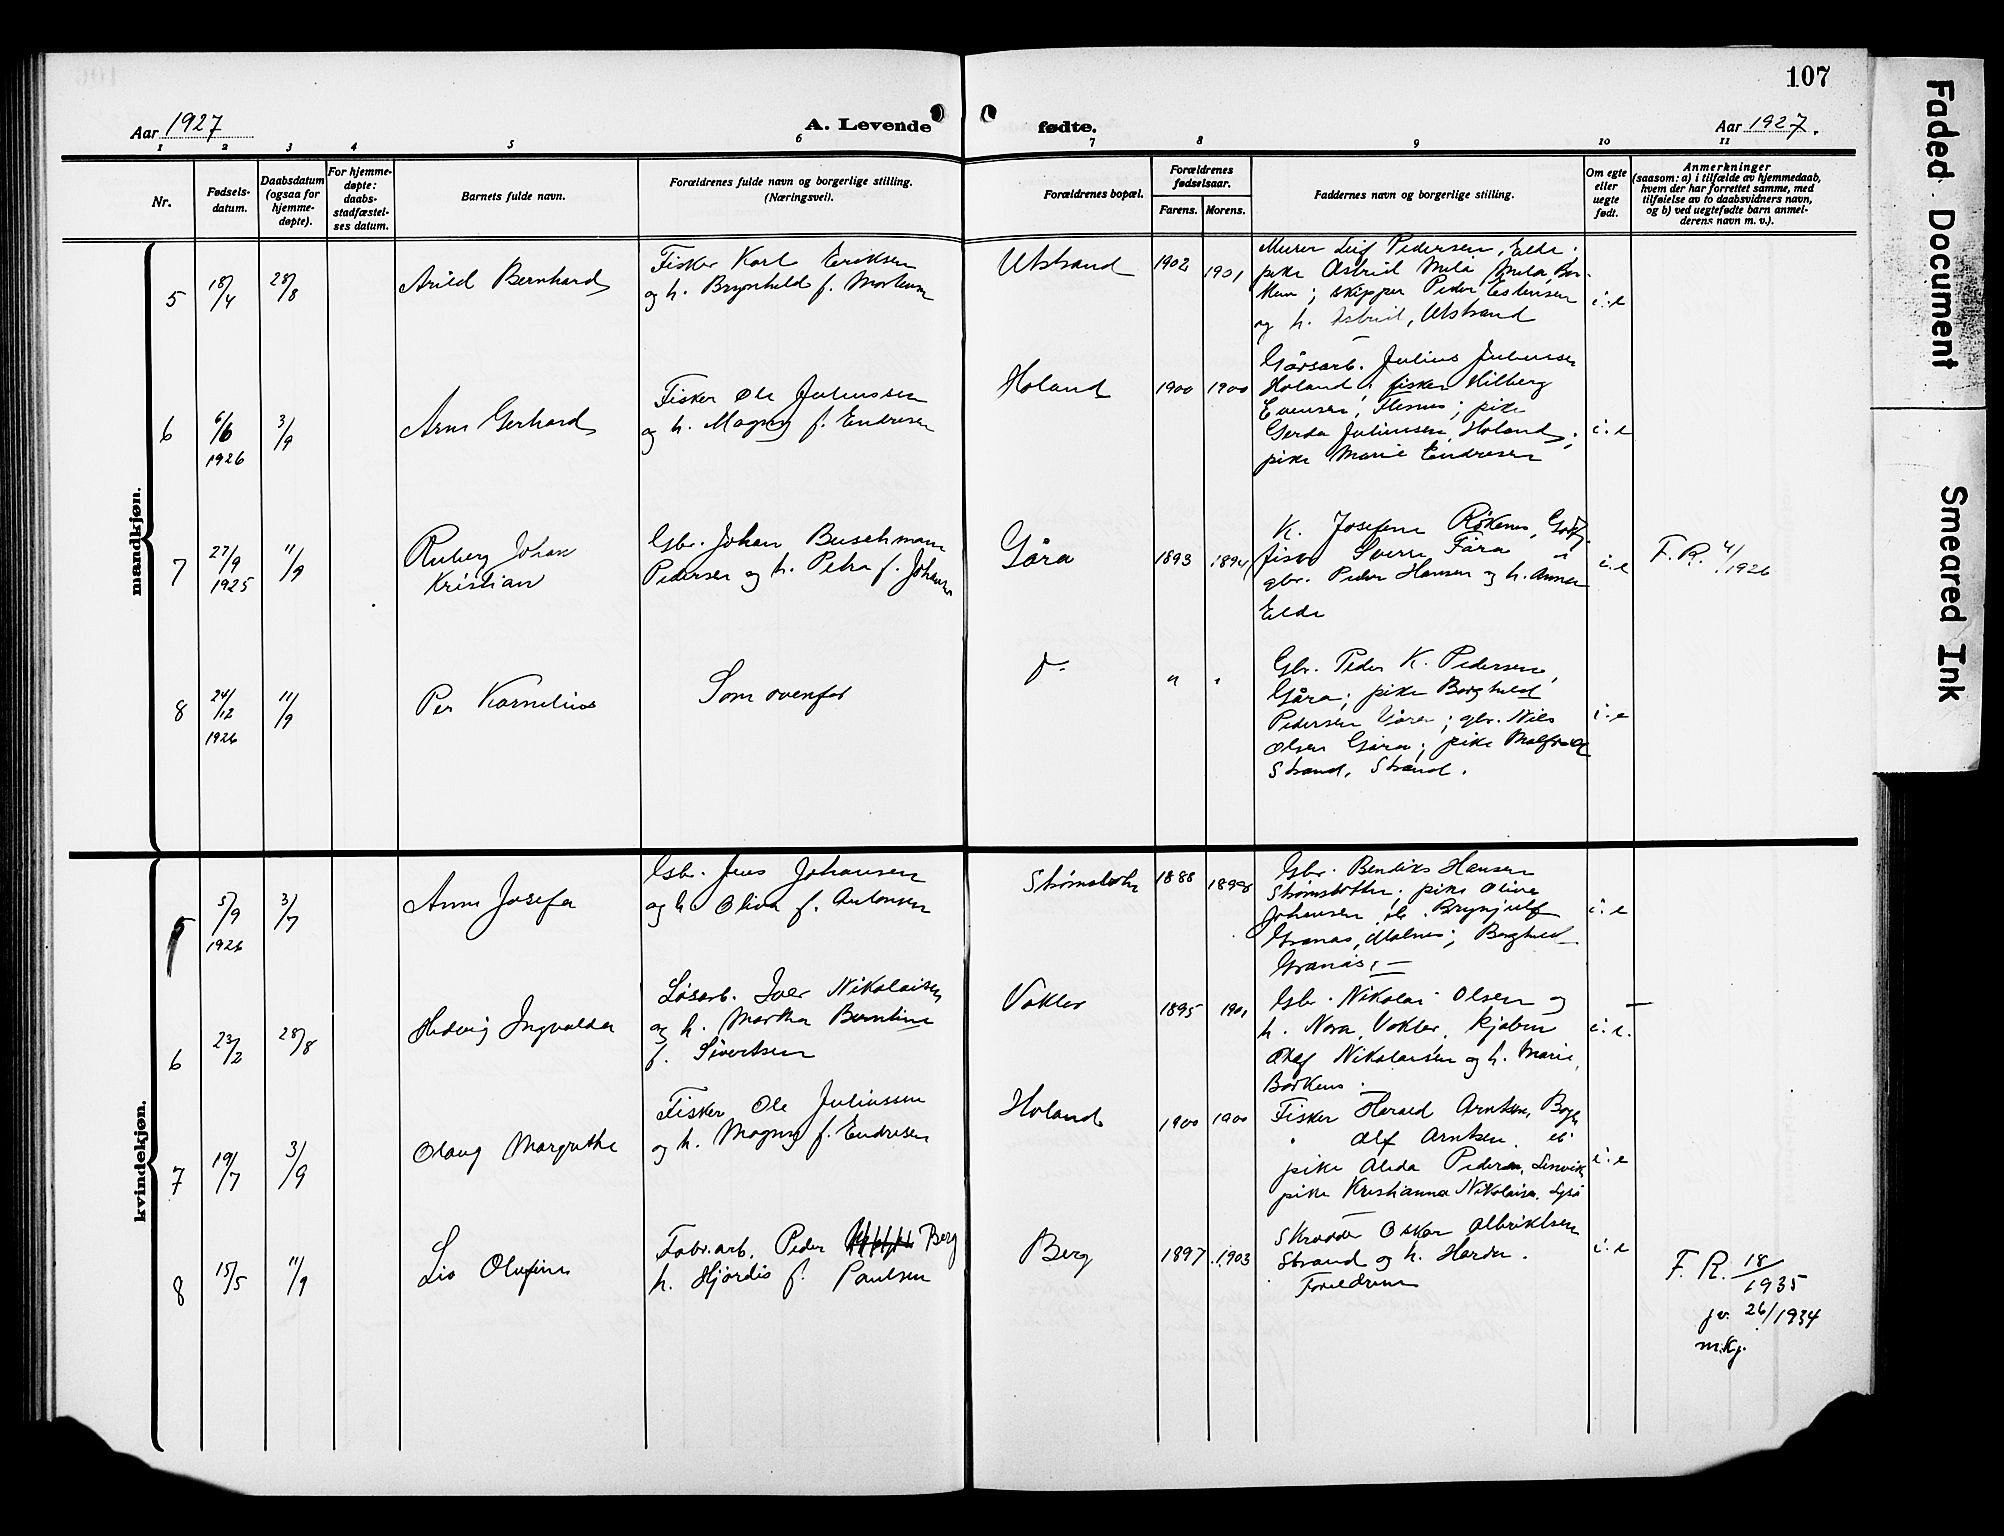 107
Aar 1927
A. Levende fødte.
Aar 1927.
1 2 3 4 5 6 7 8 9 10 11
Nr.
Fødsels-
datum.
Daabsdatum
(ogsaa for
hjemme-
døpte).
For hjemme-
døpte:
daabs-
stadfæstel-
ses datum.
Barnets fulde navn.
Forældrenes fulde navn og borgerlige stilling.
(Næringsvei).
Forældrenes bopæl.
Forældrenes
fødselsaar.
Farens. Morens.
Faddernes navn og borgerlige stilling.
Om egte
eller
uegte
født.
Anmerkninger
(saasom: a) i tilfælde av hjemmedaab,
hvem der har forrettet samme, med
tilføielse av to daabsvidners navn,
og b) ved uegtefødte barn anmel-
derens navn m. v.).
mandkjøn.
5
18/4
28/8
Arild Bernhard
Fisker Karl Eriksen
og h. Brynhild f. Mortensen
Utstrand
1902
1901
Murer Leif Pedersen, Elde.
pike Astrid Melå, Melå, Bor-
kenes; skipper Peder Estensen
og h. Astrid, Utstrand
i.e
6
6/6
1926
3/9
Arne Gerhard
Fisker Ole Juliussen
og h. Magny f. Endresen
Holand
1900
1900
Gårsarb. Julius Juliussen
Holand; fisker Hilberg
Evensen, Flesnes; pike
Gerda Juliussen, Holand;
pike Marie Endresen
i.e
7
27/9
1925
11/9
Ruberg Johan
Kristian
Gbr. Johan Buschmann
Pedersen og h. Petra f. Johansen
Gåra
1893
1894
K. Josefine Røkenes,
fisker Sverre Fåra
gbr. Peder Hansen og h. Anna
Elde
i.e
F.R. 4/1926
8
24/12
1926
11/9
Per Kornelius
Som ovenfor
"
"
Gbr. Peder K. Pedersen,
Gåra; pike Borghild
Pedersen Gåra; gbr. Nils
Olsen Gåra; pike Malfrid
Strand, Strand.
i.e
kvindekjøn.
5
5/9
1926
3/7
Anne Josefa
Gbr. Jens Johansen
og h. Oliva f. Antonsen
Strømsbotn
1888
1898
Gbr. Bendiks Hansen
Strømsbotten; pike Olive
Johansen, Brynjulf
Granås, Malnes; Borghild
Granås, —
i.e
6
23/2
28/8
Hedvig Ingvalda
Løsarb. Iver Nikolaisen
og h. Martha Berntine
f. Sivertsen
Voktor
1895
1901
Gbr. Nikolai Olsen og
h. Nora, Voktor, kjøbm
Olaf Nikolaisen og h. Marie,
Borkenes.
i.e.
—
7
19/7
3/9
Olaug Margrethe
Fisker Ole Juliussen
og h. Magny f. Endresen
Holand
1900
1900
Fisker Harald Arntsen,
" Alf Arntsen
pike Alida Pedersen, Lenvik
pike Kristianna Nikolaisen,
i.e
8
15/5
11/9
Liv Olufine
Fabr.arb. Peder Berg
h. Hjørdis f. Paulsen
Berg
1897
1903
Skrædder Oskar Albriktsen
Strand og h. Harda.
Foreldrene
i.e
F.R. 18/1935
jr. 26/1934
m.kj.
Faded Document
Smeared Ink